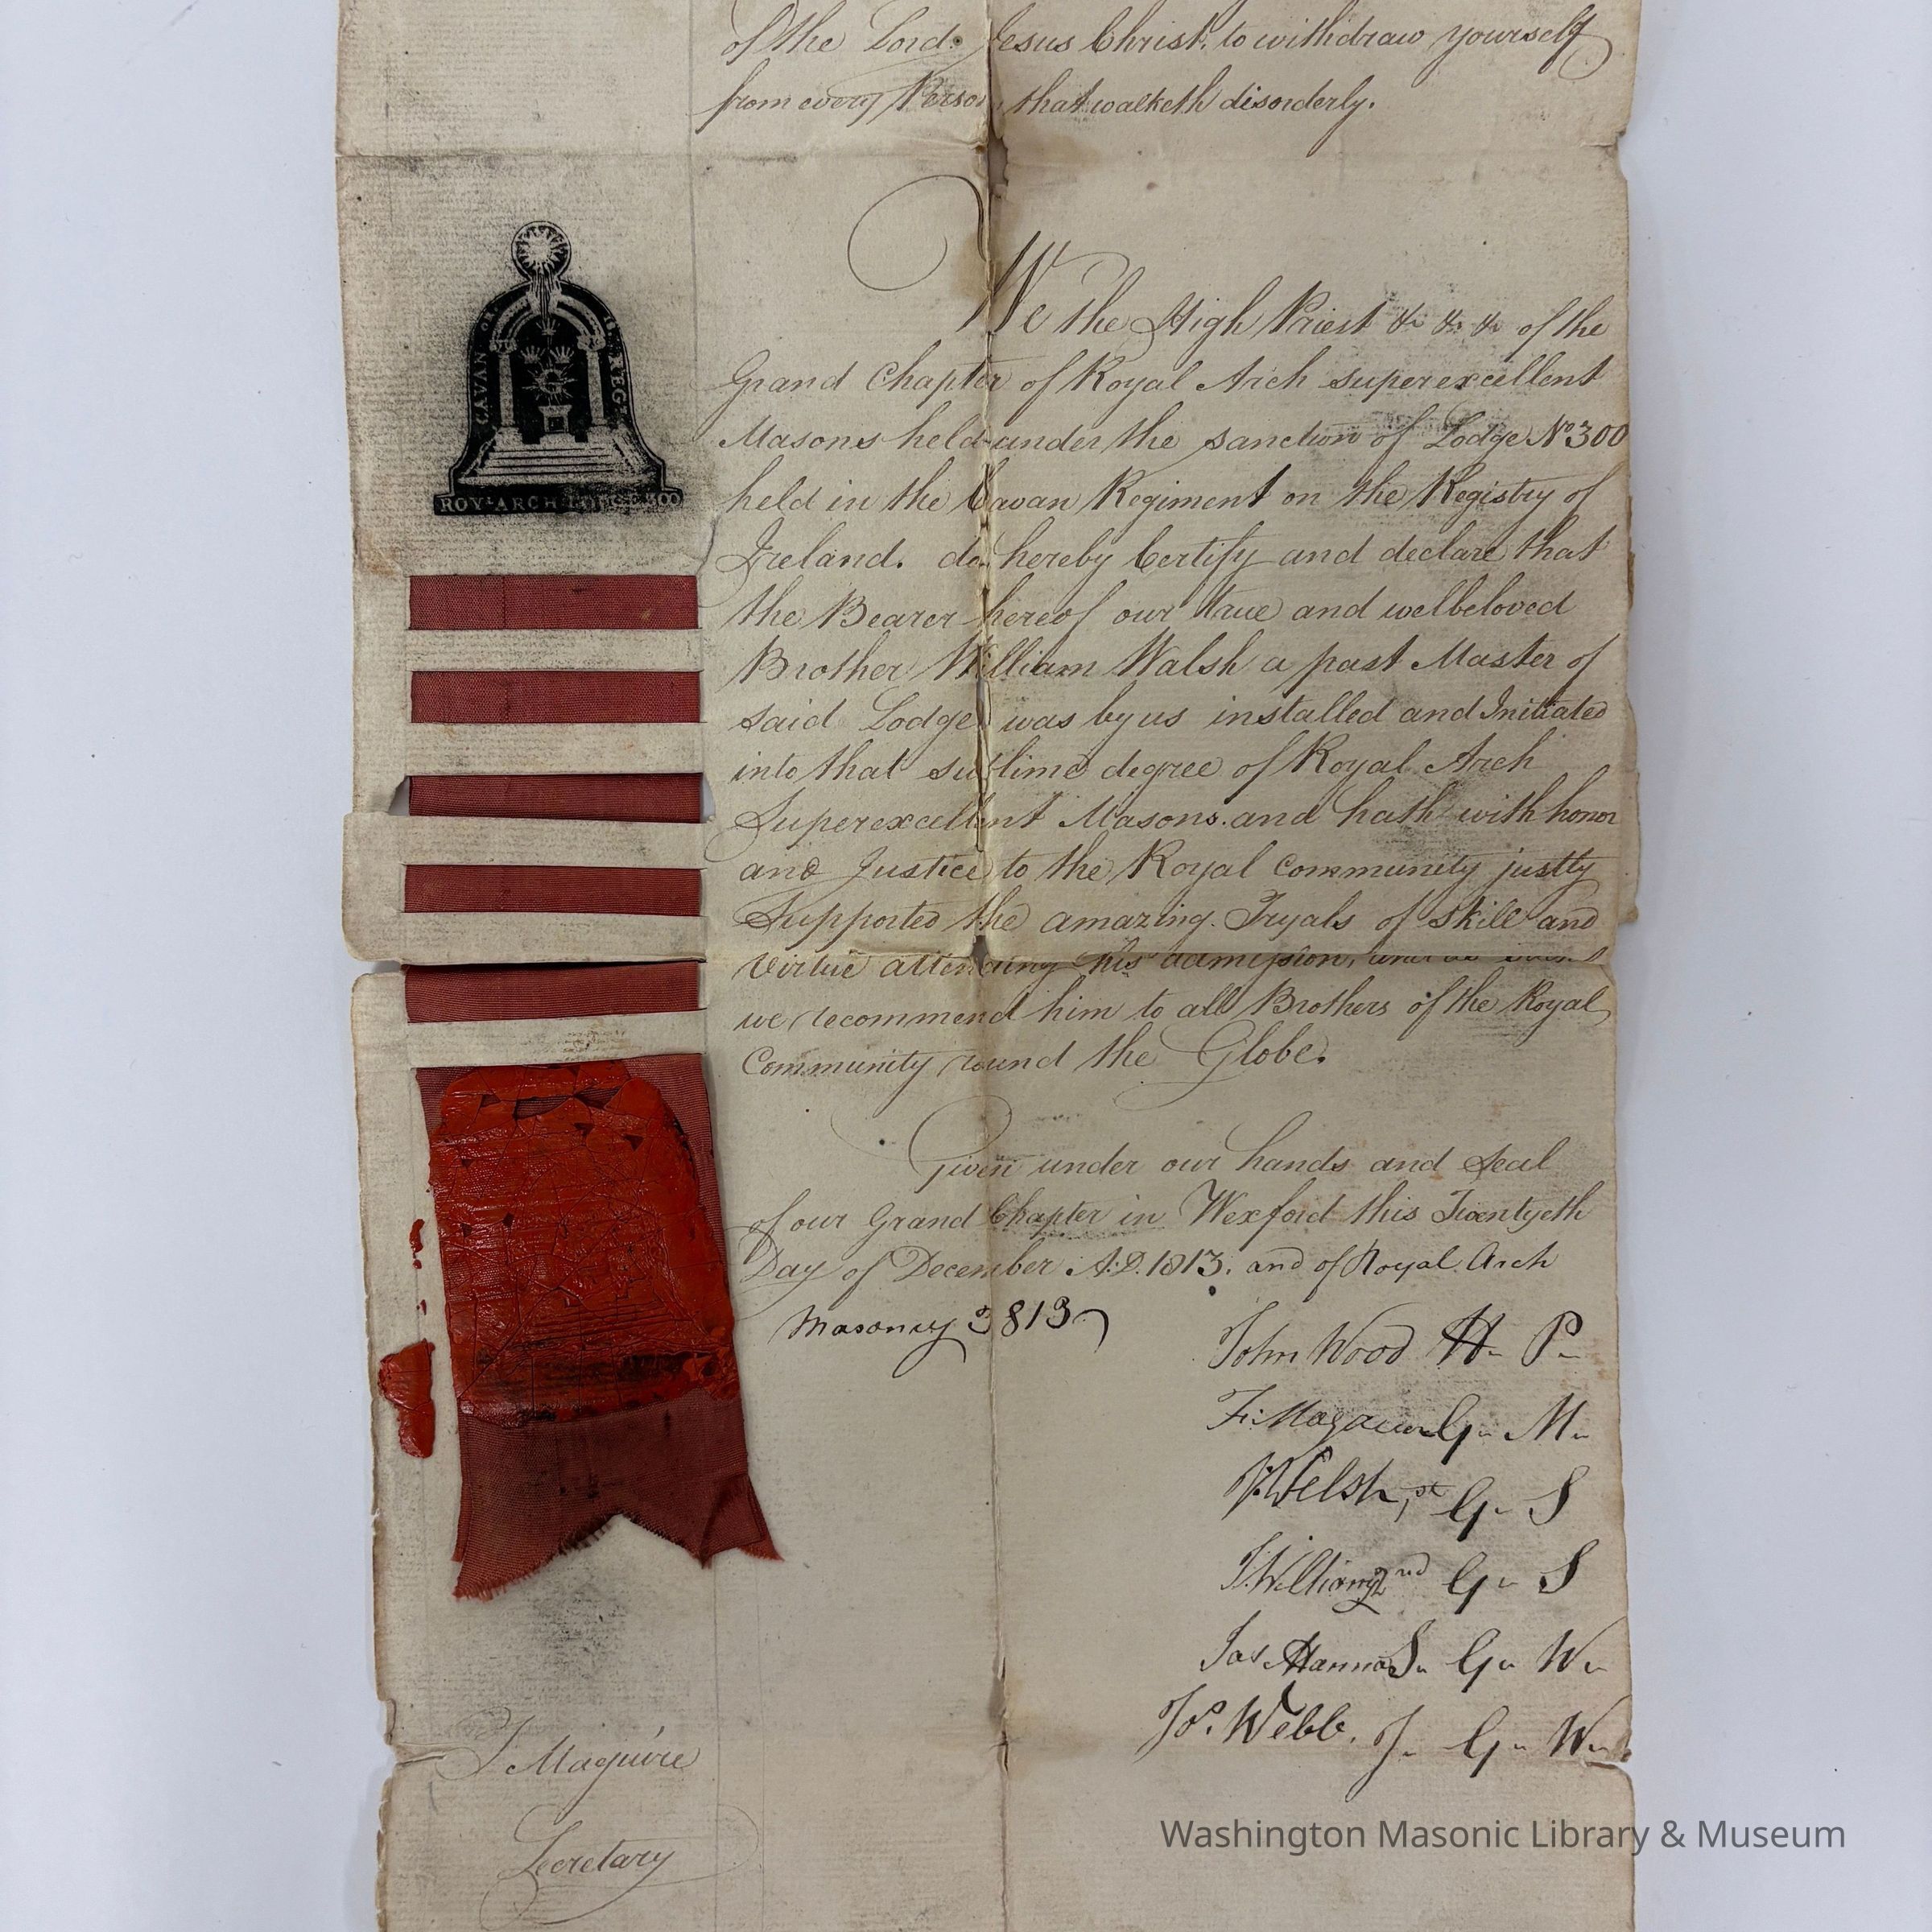 of the Lord. Jesus Christ, to withdraw yourself
from every Person that walketh disorderly.
We the High Priest &c &c &c of the
Grand Chapter of Royal Arch superexcellent
Masons held under the sanction of Lodge No 300
held in the Cavan Regiment on the Registry of
Ireland. do hereby Certify and declare that
the Bearer hereof our true and welbeloved
Brother William Walsh a past Master of
said Lodge was by us installed and Initiated
into that sublime degree of Royal Arch
Superexcellent Masons. and hath with honor
and Justice to the Royal Community justly
Supported the amazing Tryals of skill and
Virtue attending his admission,
we recommend him to all Brothers of the Royal
Community round the Globe.
Given under our hands and Seal
of our Grand Chapter in Wexford this Twentyeth
Day of December A.D. 1813. and of Royal Arch
Masonry 3813
John Wood H P
G M
Welsh 1st G S
J. Williams 2nd G S
Jas Hanna S G W
Jos. Webb. J G W
CAVAN
REGT
ROYL ARCH LODGE 300
J Maguire
Secretary
Washington Masonic Library & Museum